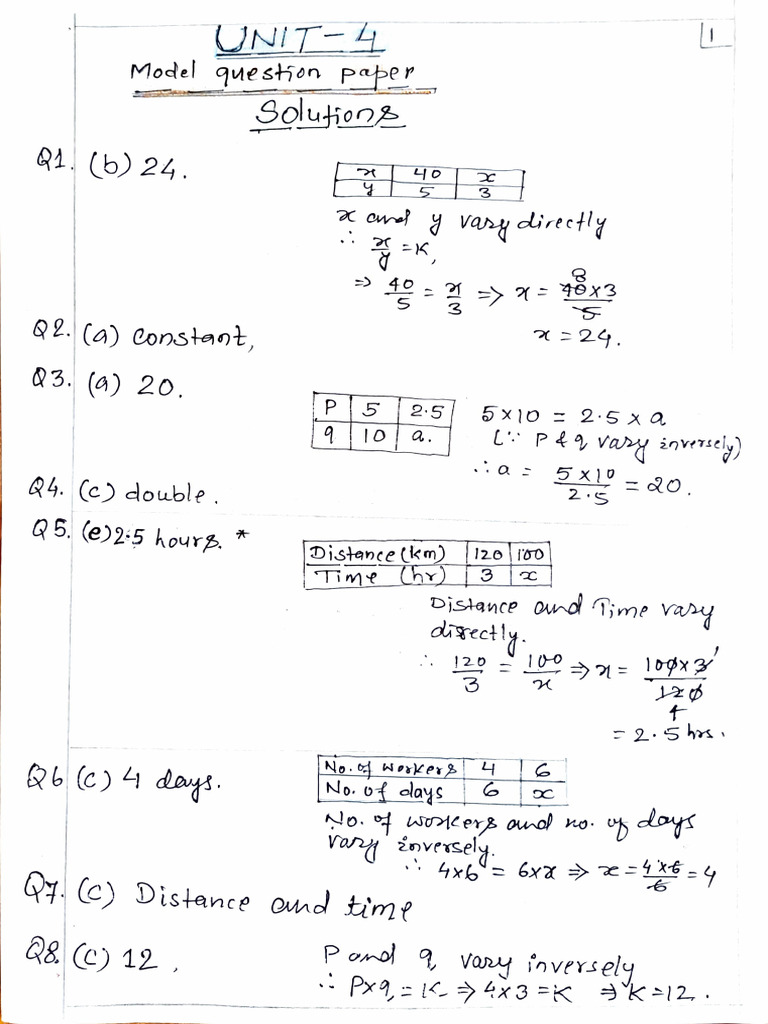 1
UNIT-4
Model question paper
Solutions
Q1. (b) 24.
x 40 x
y 5 3
x and y vary directly
∴ x/y = K,
⇒ 40/5 = x/3 ⇒ x = 40×3/5 8
x = 24.
Q2. (a) constant,
Q3. (a) 20.
P 5 2.5
q 10 a.
5×10 = 2.5 × a
(∵ P & q vary inversely)
∴ a = 5×10/2.5 = 20.
Q4. (c) double.
Q5. (e) 2.5 hours. *
Distance (km) 120 100
Time (hr) 3 x
Distance and Time vary
directly.
∴ 120/3 = 100/x ⇒ x = 100×3/120 1 4
= 2.5 hrs.
Q6 (c) 4 days.
No. of workers 4 6
No. of days 6 x
No. of workers and no. of days
vary inversely.
∴ 4×6 = 6×x ⇒ x = 4×6/6 = 4
Q7. (c) Distance and time
Q8. (c) 12,
P and q vary inversely
∴ P×q = K ⇒ 4×3 = K ⇒ K = 12.